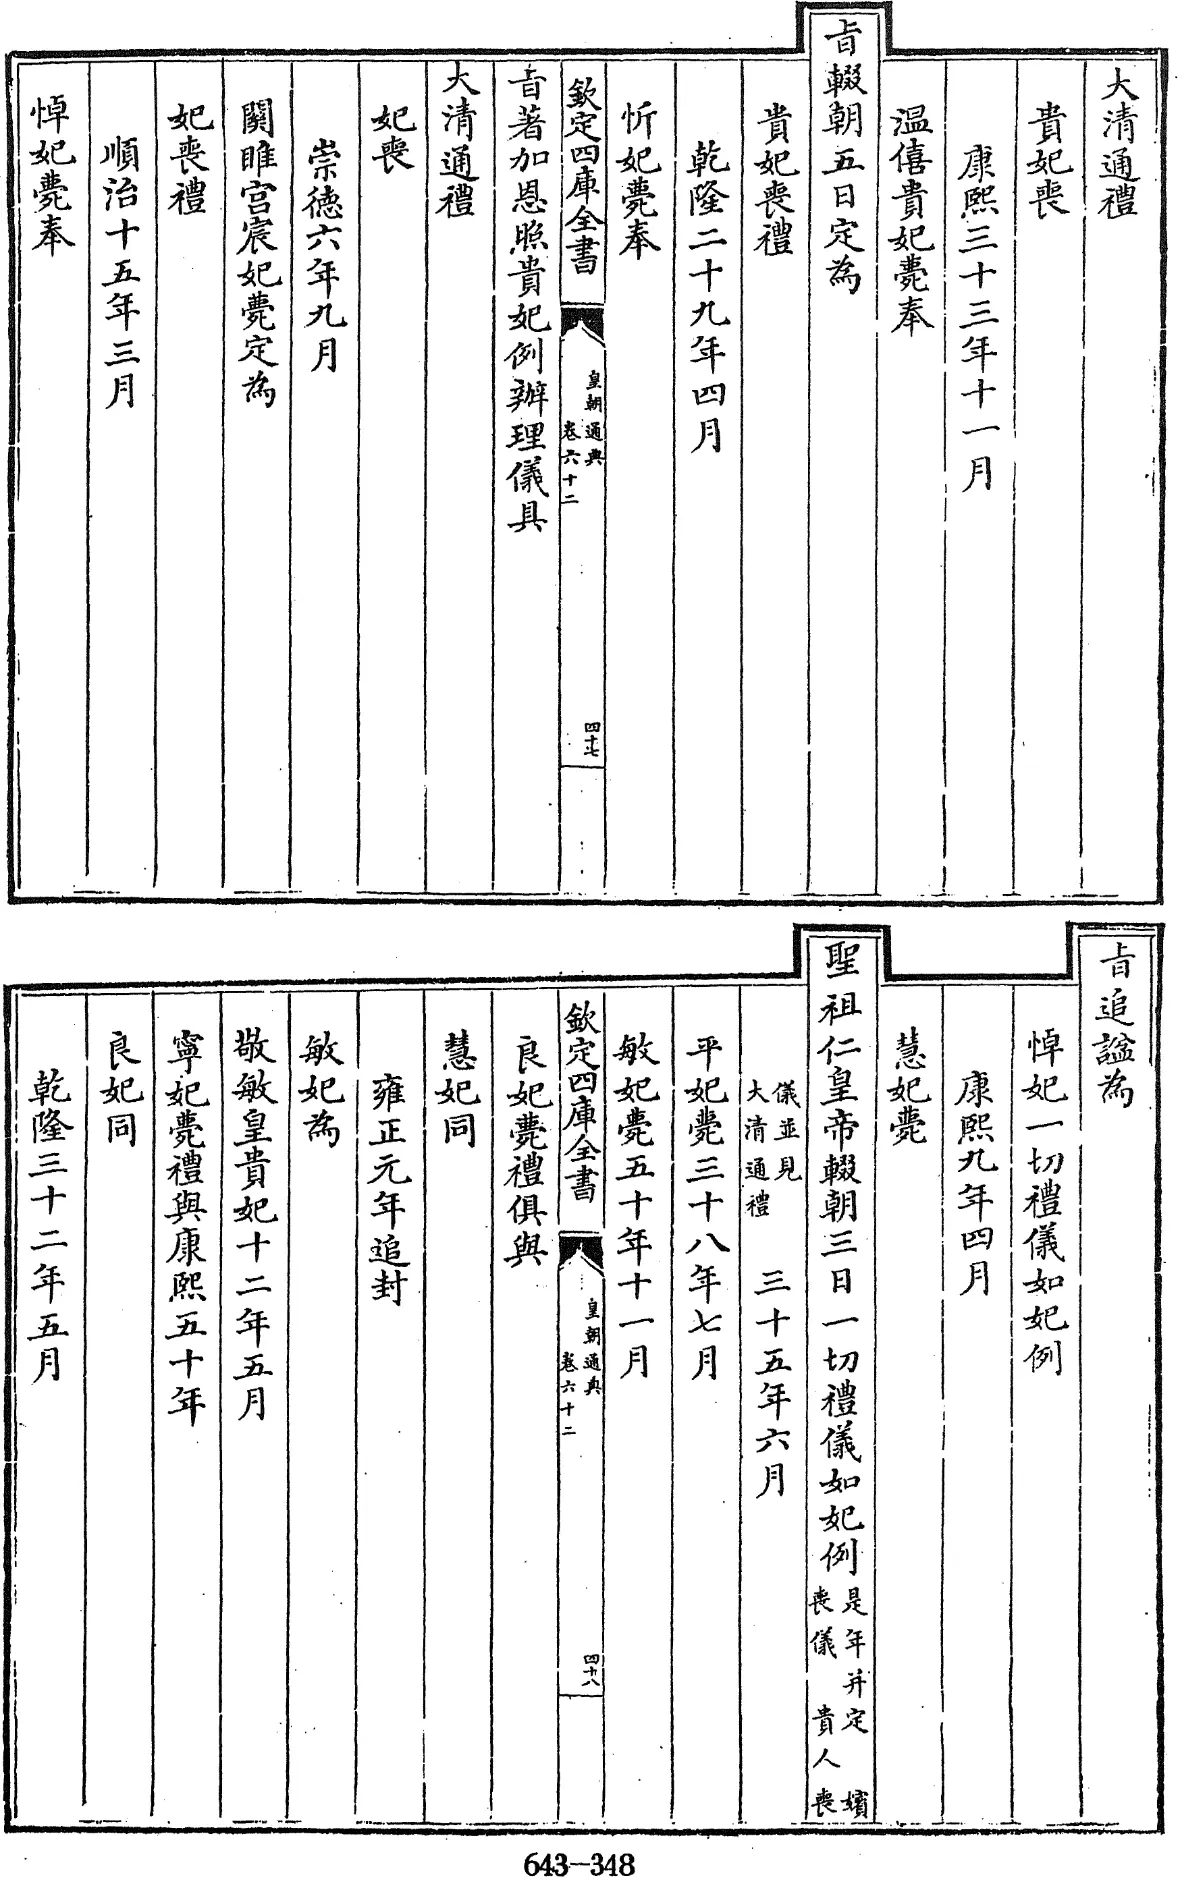 大清通禮
貴妃喪
康熙三十三年十一月
温僖貴妃薨奉
㫖輟朝五日定為
貴妃喪禮
乾隆二十九年四月
忻妃薨奉
欽定四庫全書
皇朝通典
卷六十二
四十七
㫖著加恩照貴妃例辦理儀具
大清通禮
妃喪
崇德六年九月
關雎宮宸妃薨定為
妃喪禮
順治十五年三月
悼妃薨奉
㫖追諡為
悼妃一切禮儀如妃例
康熙九年四月
慧妃薨
聖祖仁皇帝輟朝三日一切禮儀如妃例
是年并定 嬪
喪儀 貴人喪
儀並見
大清通禮
三十五年六月
平妃薨三十八年七月
敏妃薨五十年十一月
欽定四庫全書
皇朝通典
卷六十二
四十八
良妃薨禮俱與
慧妃同
雍正元年追封
敏妃為
敬敏皇貴妃十二年五月
寧妃薨禮與康熙五十年
良妃同
乾隆三十二年五月
643-348